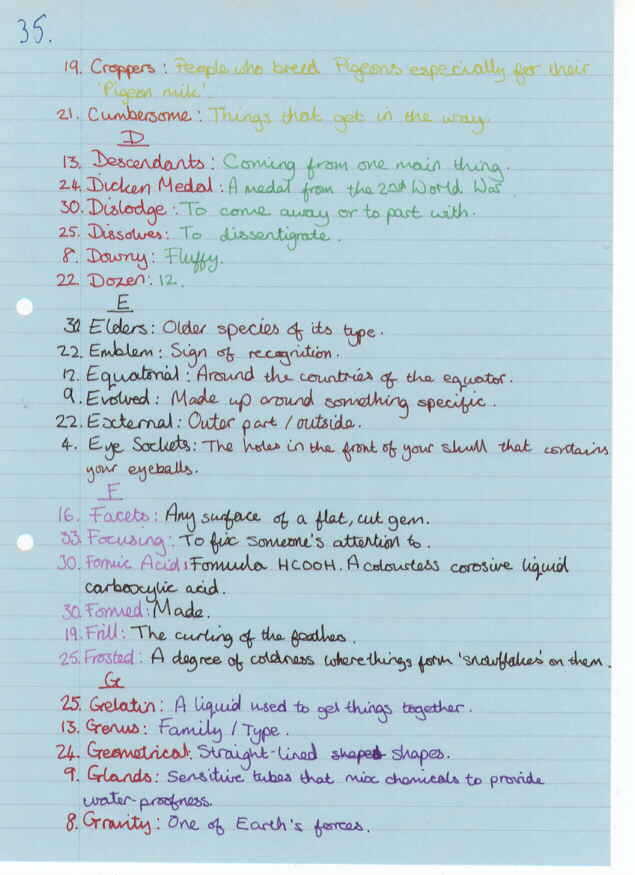 35.
19. Croppers: People who breed Pigeons especially for their
'Pigeon milk'.
21. Cumbersome: Things that get in the way.
D
13. Descendants: Coming from one main thing.
24. Dicken Medal: A medal from the 2nd World War
30. Dislodge: To come away or to part with.
25. Dissolves: To dissentigrate.
8. Downy: Fluffy.
22. Dozen: 12.
E
32 Elders: Older species of its type.
22. Emblem: Sign of recognition.
12. Equatorial: Around the countries of the equator.
9. Evolved: Made up around something specific.
22. External: Outer part / outside.
4. Eye Sockets: The holes in the front of your skull that contains
your eyeballs.
F
16. Facets: Any surface of a flat, cut gem.
33. Focusing: To fix someone's attention to.
30. Formic Acid: Formula HCOOH. A colourless corosive liquid
carboxylic acid.
30. Formed: Made.
19. Frill: The curling of the feather.
25. Frosted: A degree of coldness where things form 'snowflakes' on them.
G
25. Gelatin: A liquid used to gel things together.
13. Genus: Family / Type.
24. Geometrical: Straight-lined shaped shapes.
9. Glands: Sensitive tubes that mix chemicals to provide
water-proofness.
8. Gravity: One of Earth's forces.